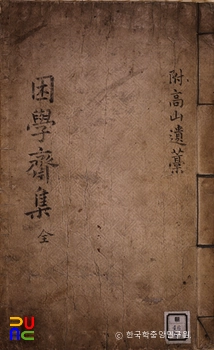 附高山遺藁
困學齋集 全
ⓒ 한국학중앙연구원